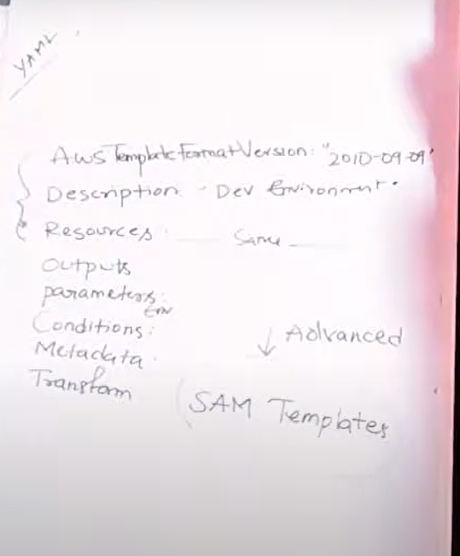 YAML
AwsTemplateFormatVersion: "2010-09-09"
Description - Dev Environment.
Resources: Same
Outputs
parameters:
Env
Conditions:
Metadata.
Transform
↓ Advanced
SAM Templates